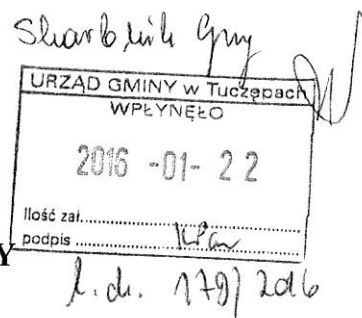 Skarbnik Gminy
URZĄD GMINY w Tuczępach
WPŁYNĘŁO
2016 -01- 22
Ilość zał..................
podpis ..................
Y
l.dz. 179/2016